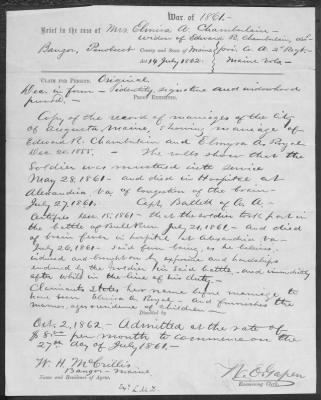 War of 1861.-
Brief in the case of Mrs Elmira A. Chamberlain-
widow of Edward R. Chamberlain,
Bangor, Penobscot County and State of Maine Co. A. 2d Regt.
14 July 1862. Maine Vols-
CLAIM FOR PENSION. Original.
Dec. in form - Identity, signature and widowhood
proved.- PROOF EXHIBITED.
Copy of the record of marriages of the City
of Augusta, Maine, showing marriage of
Edward R. Chamberlain and Elmyra A. Royal
Dec. 20. 1855.- The rolls show that the
Soldier was mustered into service
May 28, 1861 - and died in Hospital at
Alexandria Va of Congestion of the brain-
July 27, 1861. Capt. Bartlett of Co. A.-
Certifies Dec. 18, 1861 - that the soldier took part in
the battle of Bull Run July 21, 1861 - and died
of brain fever in hospital at Alexandria Va-
July 26, 1861 - said fever being, as he believes,
induced and brought on by exposure and hardships
endured by the soldier in said battle, and immediately
after while in the line of his duty.-
Claimant states her name before marriage to
have been Elmira A. Royal - and furnishes the
names, ages & residence of children -
Admitted
Oct. 2, 1862 - Admitted at the rate of
$8 per month to commence on the
27th day of July 1861.-
W. H. McCrillis
Bangor - Maine.
Name and Residence of Agent.
N. O. Gapen
Examining Clerk.